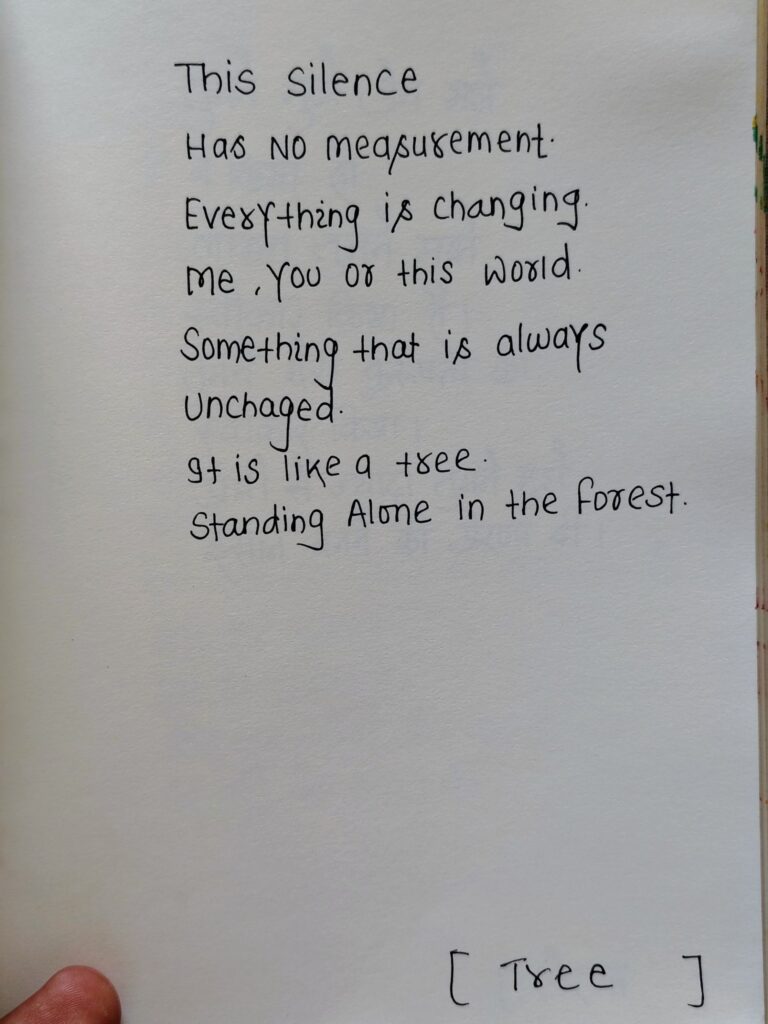 This silence
Has No measurement.
Everything is changing.
Me, You or this world.
Something that is always
Unchaged.
It is like a tree.
Standing Alone in the forest.
[ Tree ]